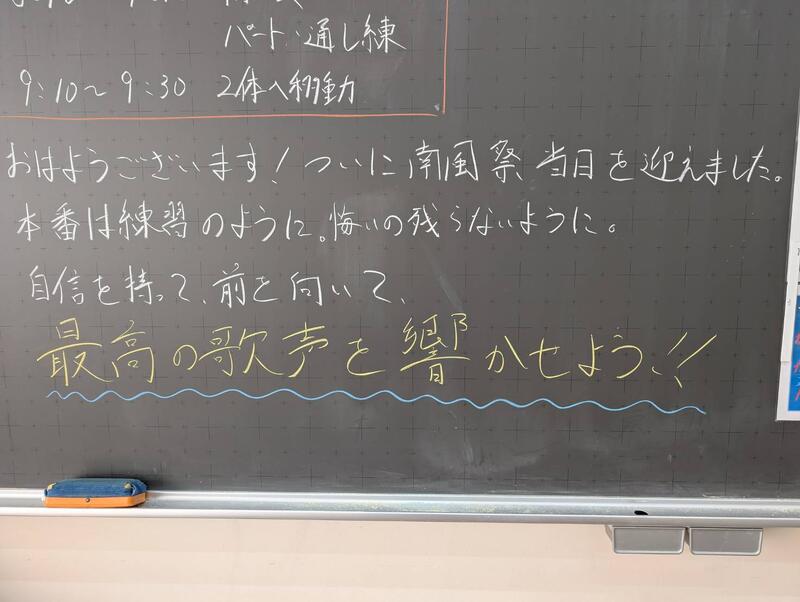 パート:通し練
9:10〜9:30 2体へ移動
おはようございます!ついに南風祭当日を迎えました。
本番は練習のように。悔いの残らないように。
自信を持って、前を向いて、
最高の歌声を響かせよう!!